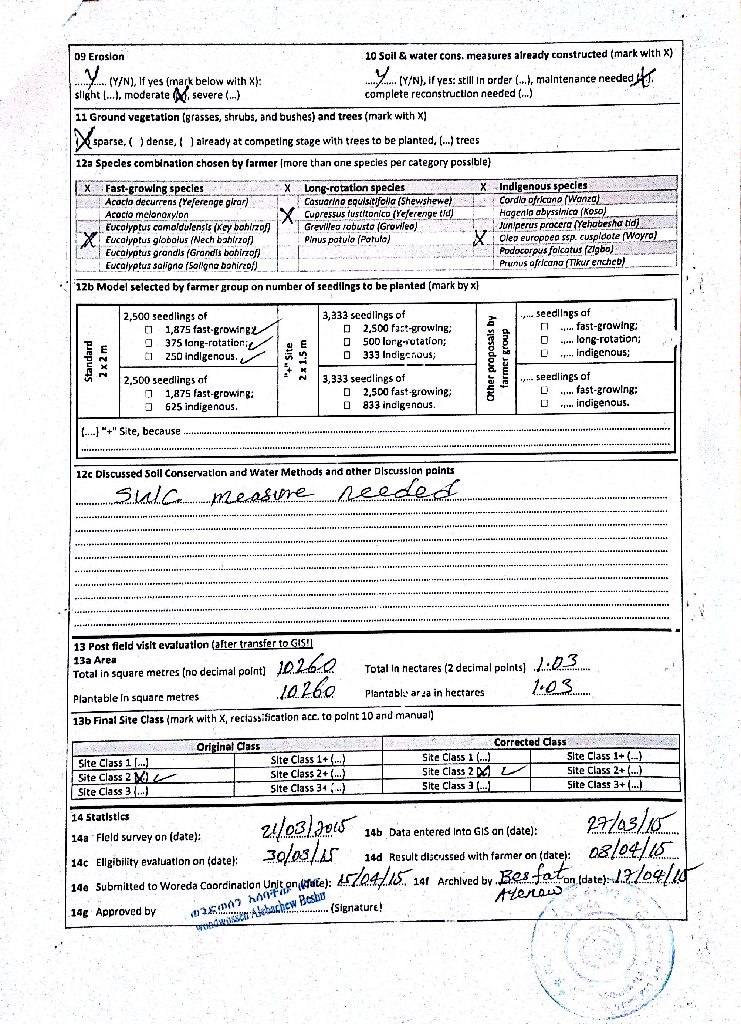 09 Erosion
10 Soil & water cons. measures already constructed (mark with X)
...Y... (Y/N), if yes (mark below with X):
...Y... (Y/N), if yes: still in order (...), maintenance needed (X),
slight (...), moderate (X), severe (...)
complete reconstruction needed (...)
11 Ground vegetation (grasses, shrubs, and bushes) and trees (mark with X)
(X) sparse, ( ) dense, ( ) already at competing stage with trees to be planted, (...) trees
12a Species combination chosen by farmer (more than one species per category possible)
X Fast-growing species X Long-rotation species X Indigenous species
Acacia decurrens (Yeferenge girar) Casuarina equisitifolia (Shewshewe) Cordia africana (Wanza)
Acacia melonoxylon X Cupressus lusitanica (Yeferenge tid) Hagenia abyssinica (Koso)
Eucalyptus camaldulensis (Key bahirzof) Grevillea robusta (Gravilea) Juniperus procera (Yehabesha tid)
X Eucalyptus globolus (Nech bahirzof) Pinus patula (Patula) X Olea europaea ssp. cuspidate (Wayra)
Eucalyptus grandis (Grandis bahirzof) Podocarpus falcatus (Zigba)
Eucalyptus saligna (Saligna bahirzof) Prunus africana (Tikur encheb)
12b Model selected by farmer group on number of seedlings to be planted (mark by x)
Standard
2 x 2 m
2,500 seedlings of
☐ 1,875 fast-growing; ✓
☐ 375 long-rotation; ✓
☐ 250 indigenous. ✓
2,500 seedlings of
☐ 1,875 fast-growing;
☐ 625 indigenous.
"+" Site
2 x 1.5 m
3,333 seedlings of
☐ 2,500 fast-growing;
☐ 500 long-rotation;
☐ 333 indigenous;
3,333 seedlings of
☐ 2,500 fast-growing;
☐ 833 indigenous.
Other proposals by
farmer group
.,... seedlings of
☐ .,... fast-growing;
☐ .,... long-rotation;
☐ .,... indigenous;
.,... seedlings of
☐ .,... fast-growing;
☐ .,... indigenous.
(....) "+" Site, because
12c Discussed Soil Conservation and Water Methods and other Discussion points
SWC measure needed
13 Post field visit evaluation (after transfer to GIS!)
13a Area
Total in square metres (no decimal point) 10260 Total in hectares (2 decimal points) 1.03
Plantable in square metres 10260 Plantable area in hectares 1.03
13b Final Site Class (mark with X, reclassification acc. to point 10 and manual)
Original Class Corrected Class
Site Class 1 (...) Site Class 1+ (...) Site Class 1 (...) Site Class 1+ (...)
Site Class 2 (X) ✓ Site Class 2+ (...) Site Class 2 (X) ✓ Site Class 2+ (...)
Site Class 3 (...) Site Class 3+ (...) Site Class 3 (...) Site Class 3+ (...)
14 Statistics
14a Field survey on (date): 21/03/2015 14b Data entered into GIS on (date): 27/03/15
14c Eligibility evaluation on (date): 30/03/15 14d Result discussed with farmer on (date): 08/04/15
14e Submitted to Woreda Coordination Unit on (date): 15/04/15 14f Archived by Besfat on (date): 17/04/15
Ayenew
14g Approved by (Signature)
wondwossen Alebachew Beshu